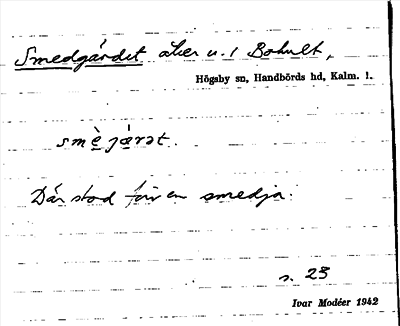 Smedgärdet åker u. 1 Bohult,
Högsby sn, Handbörds hd, Kalm. l.
smè̱ jǽ̱rət.
Där stod förr en smedja.
s. 23
Ivar Modéer 1942